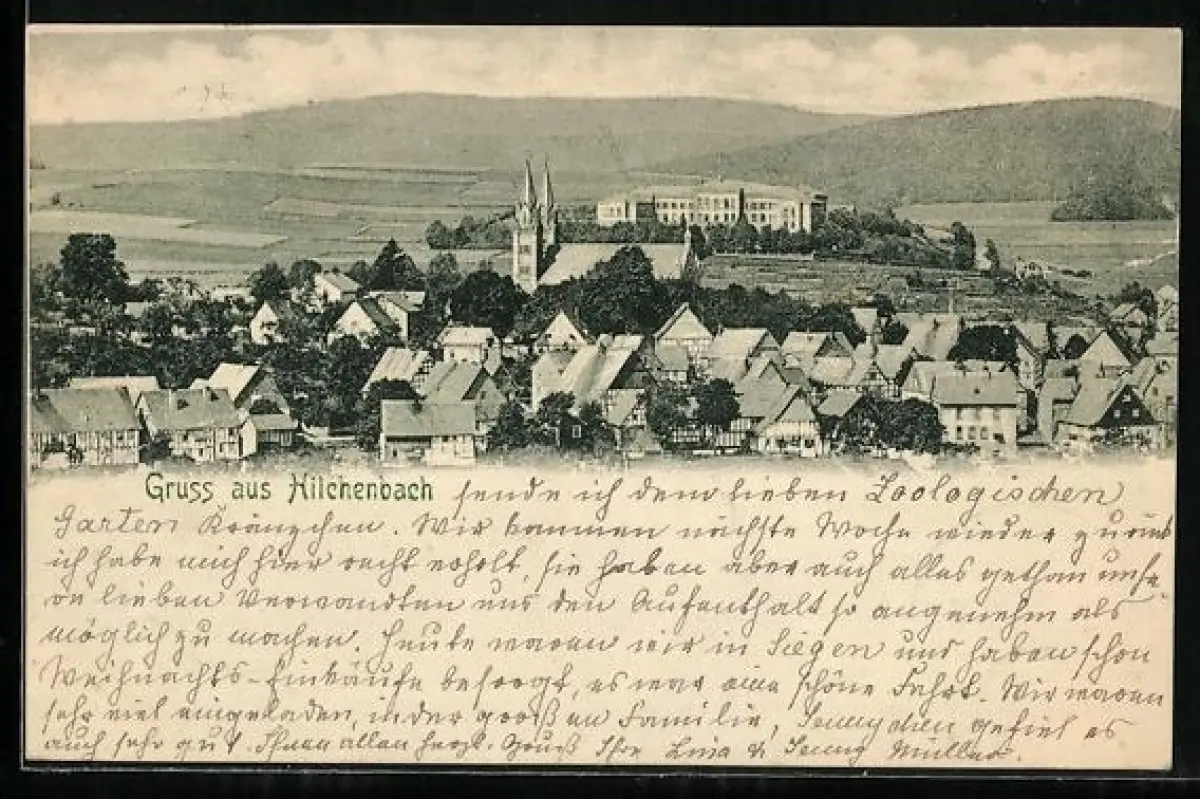 Gruss aus Hilchenbach sende ich dem lieben Zoologischen
Garten Kränzchen. Wir kommen nächste Woche wieder zurück
ich habe mich hier recht erholt, sie haben aber auch alles gethan unse
re lieben Verwandten uns den Aufenthalt so angenehm als
möglich zu machen. Heute waren wir in Siegen und haben schon
Weihnachts-Einkäufe besorgt, es war eine schöne Fahrt. Wir waren
sehr viel eingeladen, in der großen Familie, gefiel es
auch sehr gut. Ihnen allen herzl. Gruß Ihre Lina & Jenny Müller.